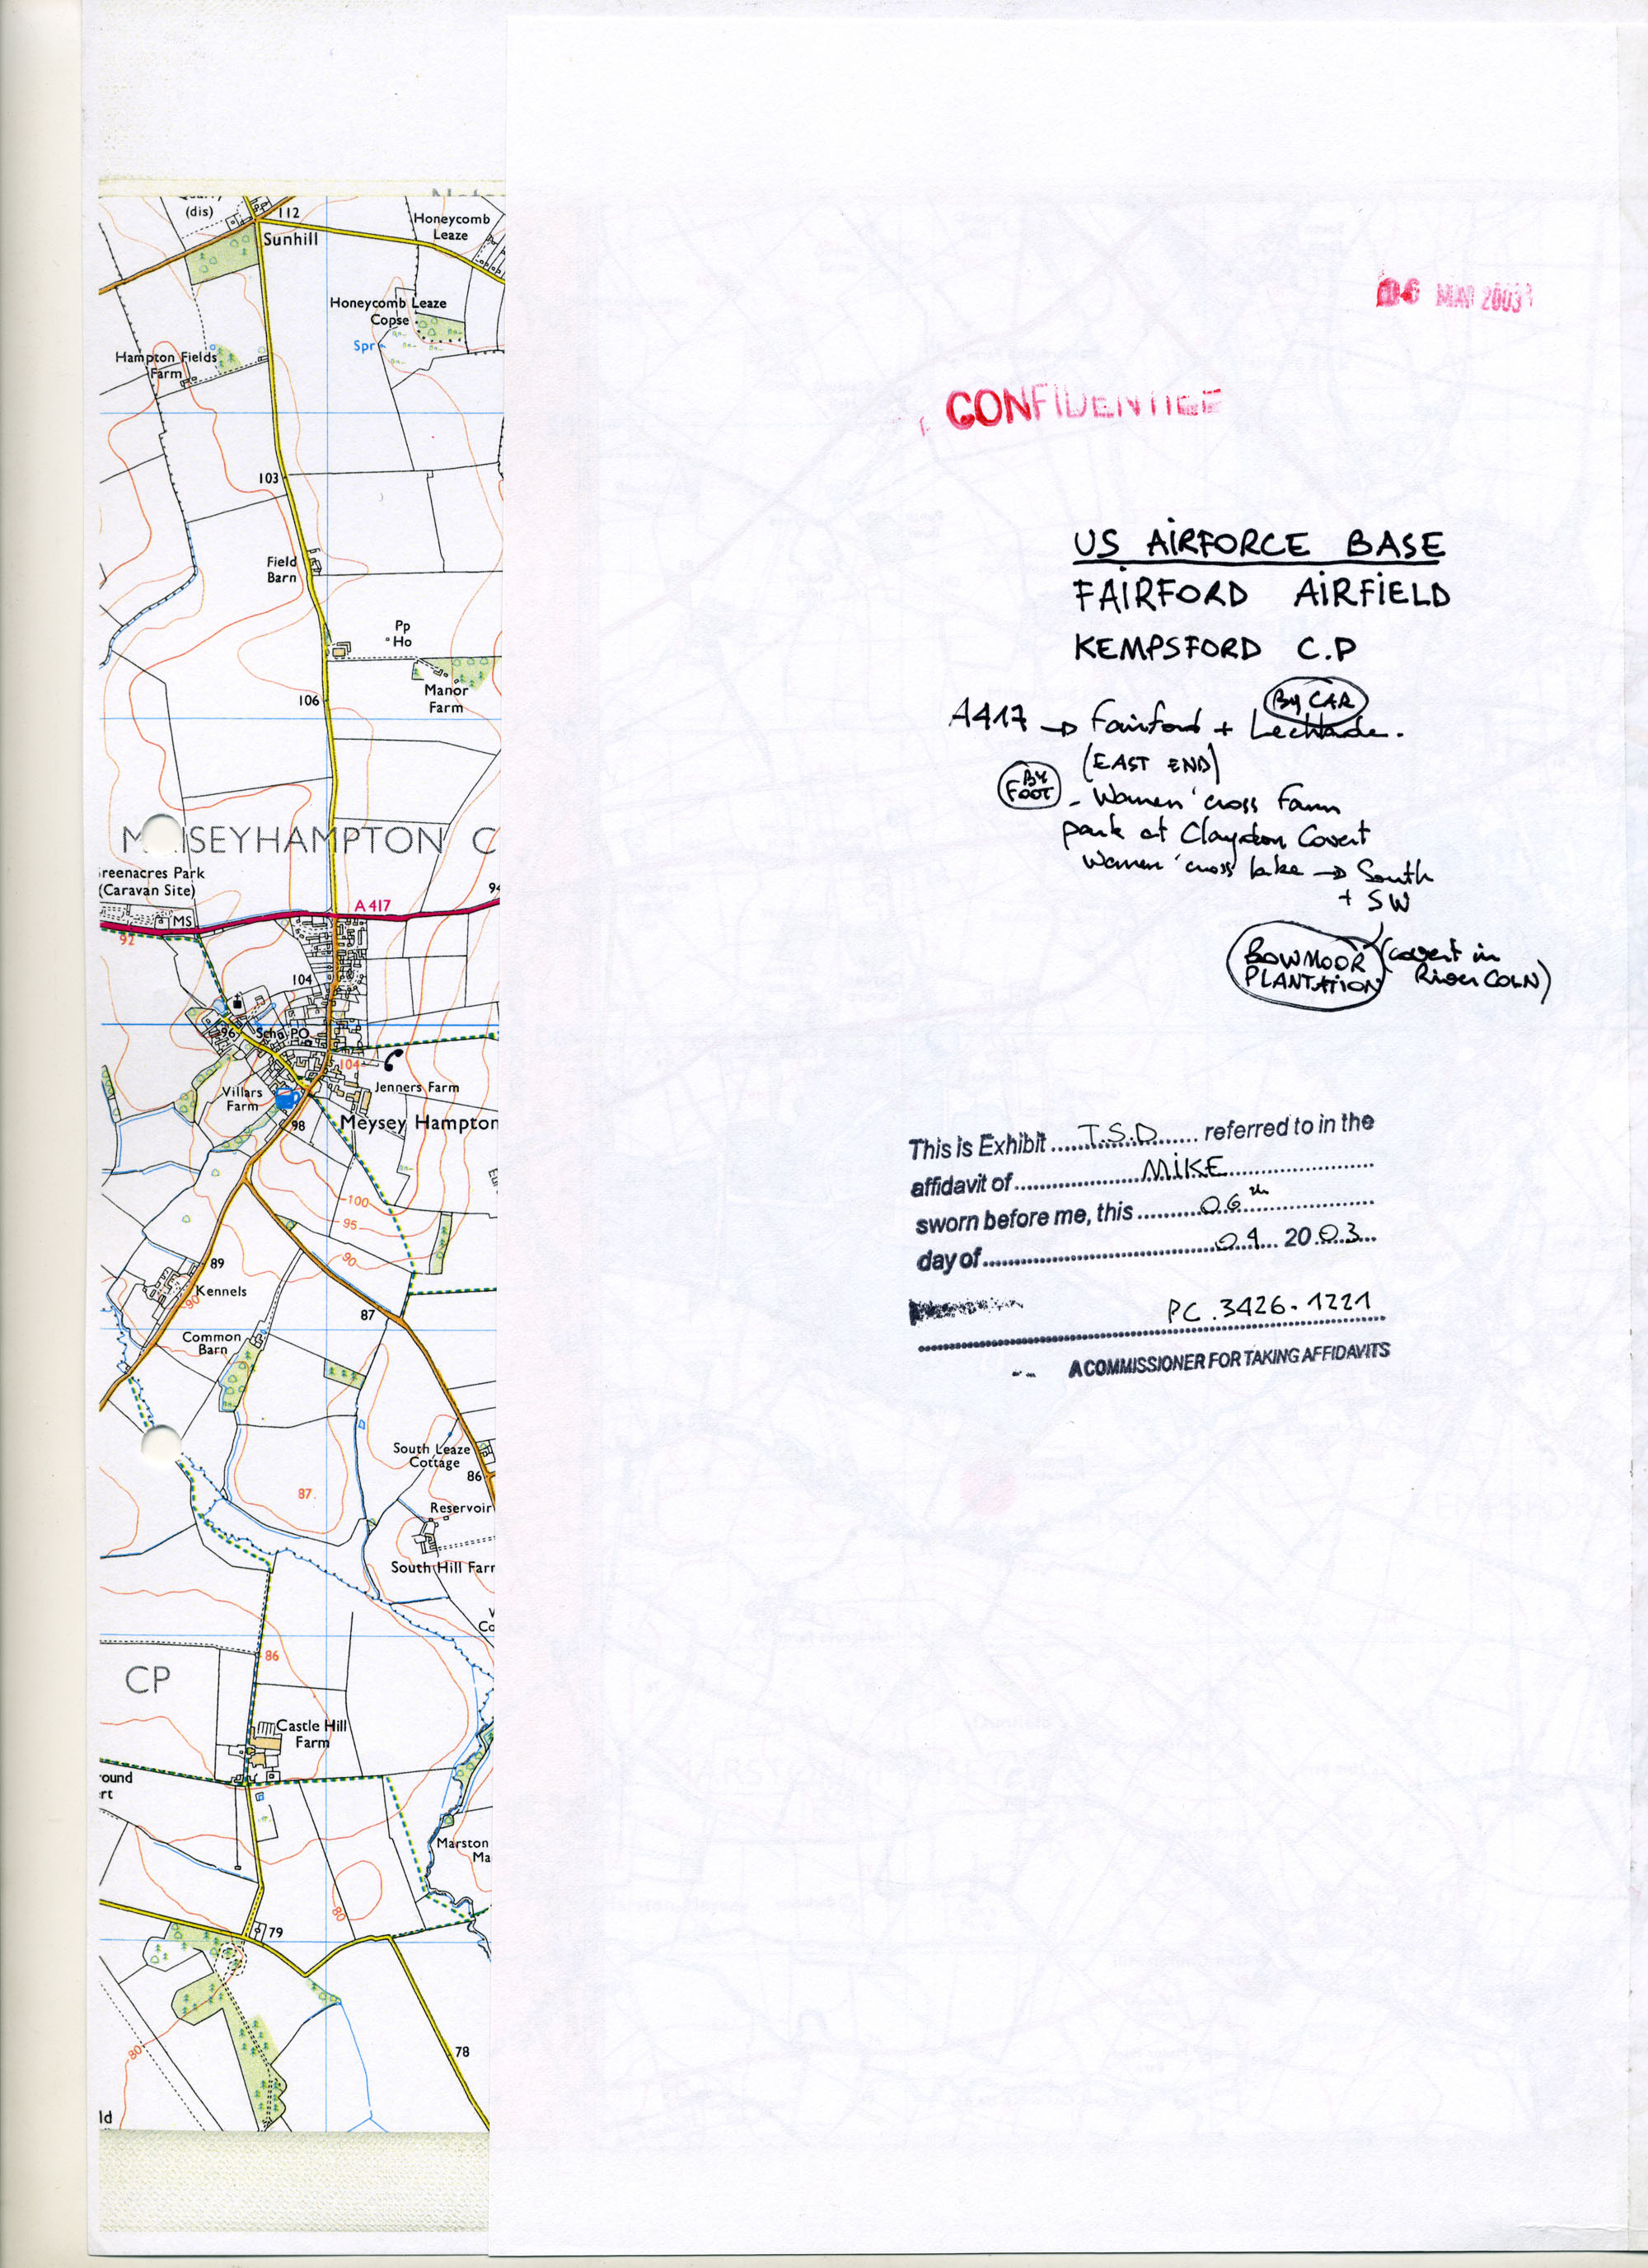 (dis)
112
Sunhill
Honeycomb
Leaze
Honeycomb Leaze
Copse
Spr
Hampton Fields
Farm
103
Field
Barn
Pp
Ho
Manor
Farm
106
ISEYHAMPTON C
reenacres Park
(Caravan Site)
94
MS
A 417
92
104
96
Sch
PO
104
Jenners Farm
Villars
Farm
98
Meysey Hampton
100
95
90
89
Kennels
90
87
Common
Barn
South Leaze
Cottage
86
87
Reservoir
South Hill Farr
Co
86
CP
Castle Hill
Farm
ound
rt
Marston
Ma
80
79
80
78
ld
06 MAI 2003
CONFIDENTIEL
US AIRFORCE BASE
FAIRFORD AIRFIELD
KEMPSFORD C.P
BY CAR
A417 → Fairford + Lechlade.
(EAST END)
BY
FOOT
- Women' cross Farm
park at Claydon Covert
Women' cross lake → South
+ SW
BOWMOOR
PLANTATION
(covert in
River COLN)
This is Exhibit T.S.D referred to in the
affidavit of MIKE
sworn before me, this 06th
day of 04 2003
PC.3426-1221
A COMMISSIONER FOR TAKING AFFIDAVITS